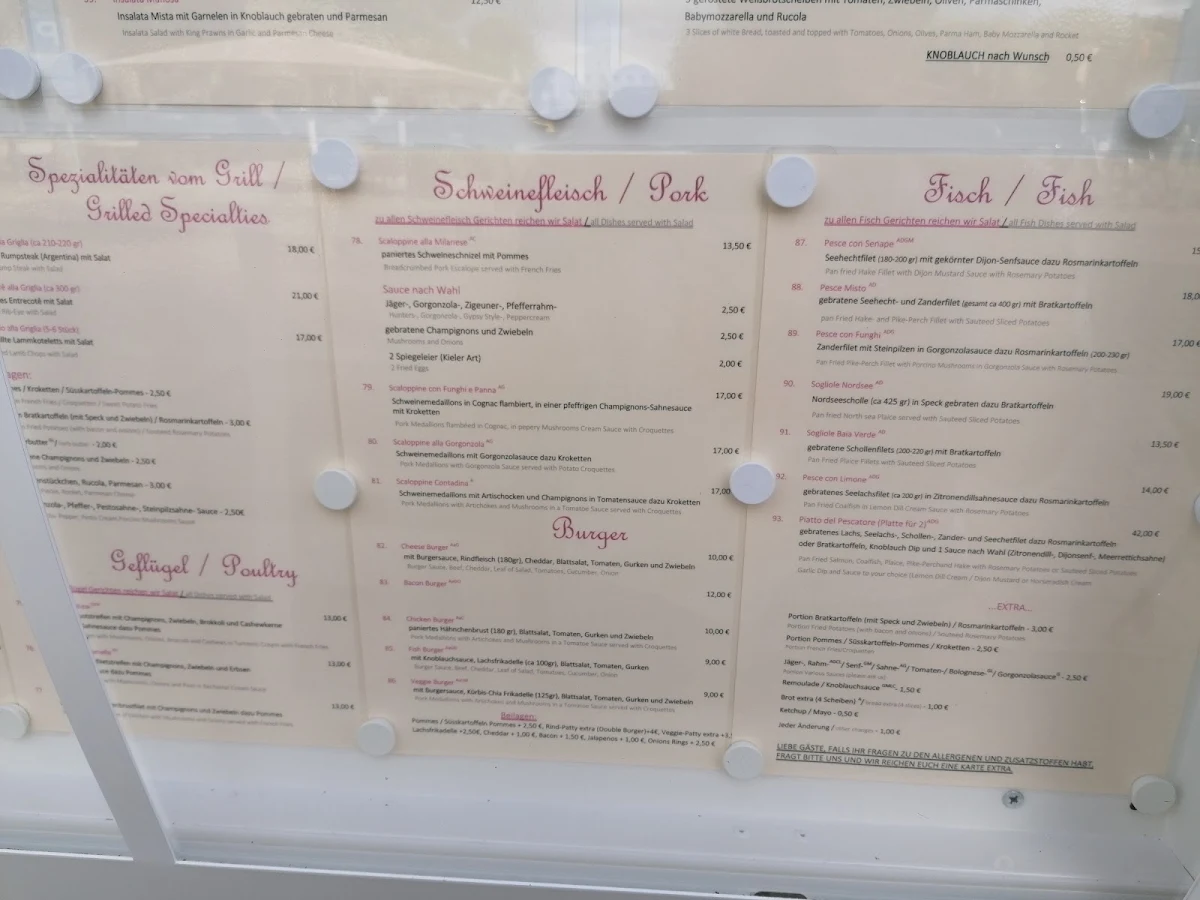 Insalata Mista mit Garnelen in Knoblauch gebraten und Parmesan
Insalata Salad with King Prawns in Garlic and Parmesan Cheese
Babymozzarella und Rucola
3 Slices of white Bread, toasted and topped with Tomatoes, Onions, Olives, Parma Ham, Baby Mozzarella and Rocket
KNOBLAUCH nach Wunsch 0,50 €
Spezialitäten vom Grill /
Grilled Specialties
a Griglia (ca 210-220 gr) 18,00 €
Rumpsteak (Argentina) mit Salat
Steak with Salad
alla Griglia (ca 300 gr) 21,00 €
Entrecotê mit Salat
Rib-Eye with Salad
alla Griglia (5-6 Stück) 17,00 €
Lammkoteletts mit Salat
Lamb Chops with Salad
/ Kroketten / Süsskartoffel-Pommes - 2,50 €
Bratkartoffeln (mit Speck und Zwiebeln) / Rosmarinkartoffeln - 3,00 €
- 2,00 €
Champignons und Zwiebeln - 2,50 €
Rucola, Parmesan - 3,00 €
Pfeffer-, Pestosahne-, Steinpilzsahne- Sauce - 2,50€
Geflügel / Poultry
Gerichten reichen wir Salat / all Dishes served with Salad
mit Champignons, Zwiebeln, Brokkoli und Cashewkerne 13,00 €
dazu Pommes
mit Champignons, Zwiebeln und Erbsen 13,00 €
dazu Pommes
mit Champignons und Zwiebeln dazu Pommes 13,00 €
Schweinefleisch / Pork
zu allen Schweinefleisch Gerichten reichen wir Salat / all Dishes served with Salad
78. Scaloppine alla Milanese 13,50 €
paniertes Schweineschnizel mit Pommes
Breadcrumbed Pork Escalope served with French Fries
Sauce nach Wahl
Jäger-, Gorgonzola-, Zigeuner-, Pfefferrahm- 2,50 €
Hunters-, Gorgonzola-, Gypsy Style-, Peppercream
gebratene Champignons und Zwiebeln 2,50 €
Mushrooms and Onions
2 Spiegeleier (Kieler Art) 2,00 €
2 Fried Eggs
79. Scaloppine con Funghi e Panna 17,00 €
Schweinemedaillons in Cognac flambiert, in einer pfeffrigen Champignons-Sahnesauce
mit Kroketten
Pork Medallions flambéed in Cognac, in pepery Mushrooms Cream Sauce with Croquettes
80. Scaloppine alla Gorgonzola 17,00 €
Schweinemedaillons mit Gorgonzolasauce dazu Kroketten
Pork Medallions with Gorgonzola Sauce served with Potato Croquettes
81. Scaloppine Contadina 17,00
Schweinemedaillons mit Artischocken und Champignons in Tomatensauce dazu Kroketten
Pork Medallions with Artichokes and Mushrooms in a Tomatoe Sauce served with Croquettes
Burger
82. Cheese Burger 10,00 €
mit Burgersauce, Rindfleisch (180gr), Cheddar, Blattsalat, Tomaten, Gurken und Zwiebeln
Burger Sauce, Beef, Cheddar, Leaf of Salad, Tomatoes, Cucumber, Onion
83. Bacon Burger 12,00 €
84. Chicken Burger 10,00 €
paniertes Hähnchenbrust (180 gr), Blattsalat, Tomaten, Gurken und Zwiebeln
Pork Medallions with Artichokes and Mushrooms in a Tomatoe Sauce served with Croquettes
85. Fish Burger 9,00 €
mit Knoblauchsauce, Lachsfrikadelle (ca 100gr), Blattsalat, Tomaten, Gurken
Burger Sauce, Beef, Cheddar, Leaf of Salad, Tomatoes, Cucumber, Onion
86. Veggie Burger 9,00 €
mit Burgersauce, Kürbis-Chia Frikadelle (125gr), Blattsalat, Tomaten, Gurken und Zwiebeln
Pork Medallions with Artichokes and Mushrooms in a Tomatoe Sauce served with Croquettes
Beilagen:
Pommes / Süsskartoffeln Pommes + 2,50 €, Rind-Patty extra (Double Burger)+4€, Veggie-Patty extra
Lachsfrikadelle +2,50€, Cheddar + 1,00 €, Bacon + 1,50 €, Jalapenos + 1,00 €, Onions Rings + 2,50 €
Fisch / Fish
zu allen Fisch Gerichten reichen wir Salat / all Fish Dishes served with Salad
87. Pesce con Senape
Seehechtfilet (180-200 gr) mit gekörnter Dijon-Senfsauce dazu Rosmarinkartoffeln
Pan fried Hake Fillet with Dijon Mustard Sauce with Rosemary Potatoes
88. Pesce Misto 18,0
gebratene Seehecht- und Zanderfilet (gesamt ca 400 gr) mit Bratkartoffeln
pan Fried Hake- and Pike-Perch Fillet with Sauteed Sliced Potatoes
89. Pesce con Funghi 17,00 €
Zanderfilet mit Steinpilzen in Gorgonzolasauce dazu Rosmarinkartoffeln (200-230 gr)
Pan Fried Pike-Perch Fillet with Porcino Mushrooms in Gorgonzola Sauce with Rosemary Potatoes
90. Sogliole Nordsee 19,00 €
Nordseescholle (ca 425 gr) in Speck gebraten dazu Bratkartoffeln
Pan fried North sea Plaice served with Sauteed Sliced Potatoes
91. Sogliole Baia Verde 13,50 €
gebratene Schollenfilets (200-220 gr) mit Bratkartoffeln
Pan Fried Plaice Fillets with Sauteed Sliced Potatoes
92. Pesce con Limone 14,00 €
gebratenes Seelachsfilet (ca 200 gr) in Zitronendillsahnesauce dazu Rosmarinkartoffeln
Pan Fried Coalfish in Lemon Dill Cream Sauce with Rosemary Potatoes
93. Piatto del Pescatore (Platte für 2) 42,00 €
gebratenes Lachs, Seelachs-, Schollen-, Zander- und Seechetfilet dazu Rosmarinkartoffeln
oder Bratkartoffeln, Knoblauch Dip und 1 Sauce nach Wahl (Zitronendill-, Dijonsenf-, Meerrettichsahne)
Pan Fried Salmon, Coalfish, Plaice, Pike-Perchand Hake with Rosemary Potatoes or Sauteed Sliced Potatoes
Garlic Dip and Sauce to your choice (Lemon Dill Cream / Dijon Mustard or Horseradish Cream
...EXTRA...
Portion Bratkartoffeln (mit Speck und Zwiebeln) / Rosmarinkartoffeln - 3,00 €
Portion Fried Potatoes (with Bacon and onions) / Sauteed Rosemary Potatoes
Portion Pommes / Süsskartoffeln-Pommes / Kroketten - 2,50 €
Portion French Fries/Croquettes
Jäger-, Rahm- / Senf- / Sahne- / Tomaten-/ Bolognese- / Gorgonzolasauce - 2,50 €
Remoulade / Knoblauchsauce - 1,50 €
Brot extra (4 Scheiben) - 1,00 €
Ketchup / Mayo - 0,50 €
Jeder Änderung / - 1,00 €
LIEBE GÄSTE, FALLS IHR FRAGEN ZU DEN ALLERGENEN UND ZUSATZSTOFFEN HABT,
FRAGT BITTE UNS UND WIR REICHEN EUCH EINE KARTE EXTRA.